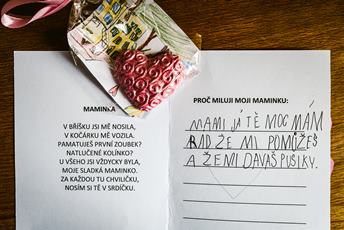 MAMINKA
V BŘÍŠKU JSI MĚ NOSILA,
V KOČÁRKU MĚ VOZILA.
PAMATUJEŠ PRVNÍ ZOUBEK?
NATLUČENÉ KOLÍNKO?
U VŠEHO JSI VŽDYCKY BYLA,
MOJE SLADKÁ MAMINKO.
ZA KAŽDOU TU CHVILIČKU,
NOSÍM SI TĚ V SRDÍČKU.
PROČ MILUJI MOJI MAMINKU:
MAMI JÁ TĚ MOC MÁM
RÁD ŽE MI POMŮŽEŠ
A ŽE MI DÁVAŠ PUSIKY.